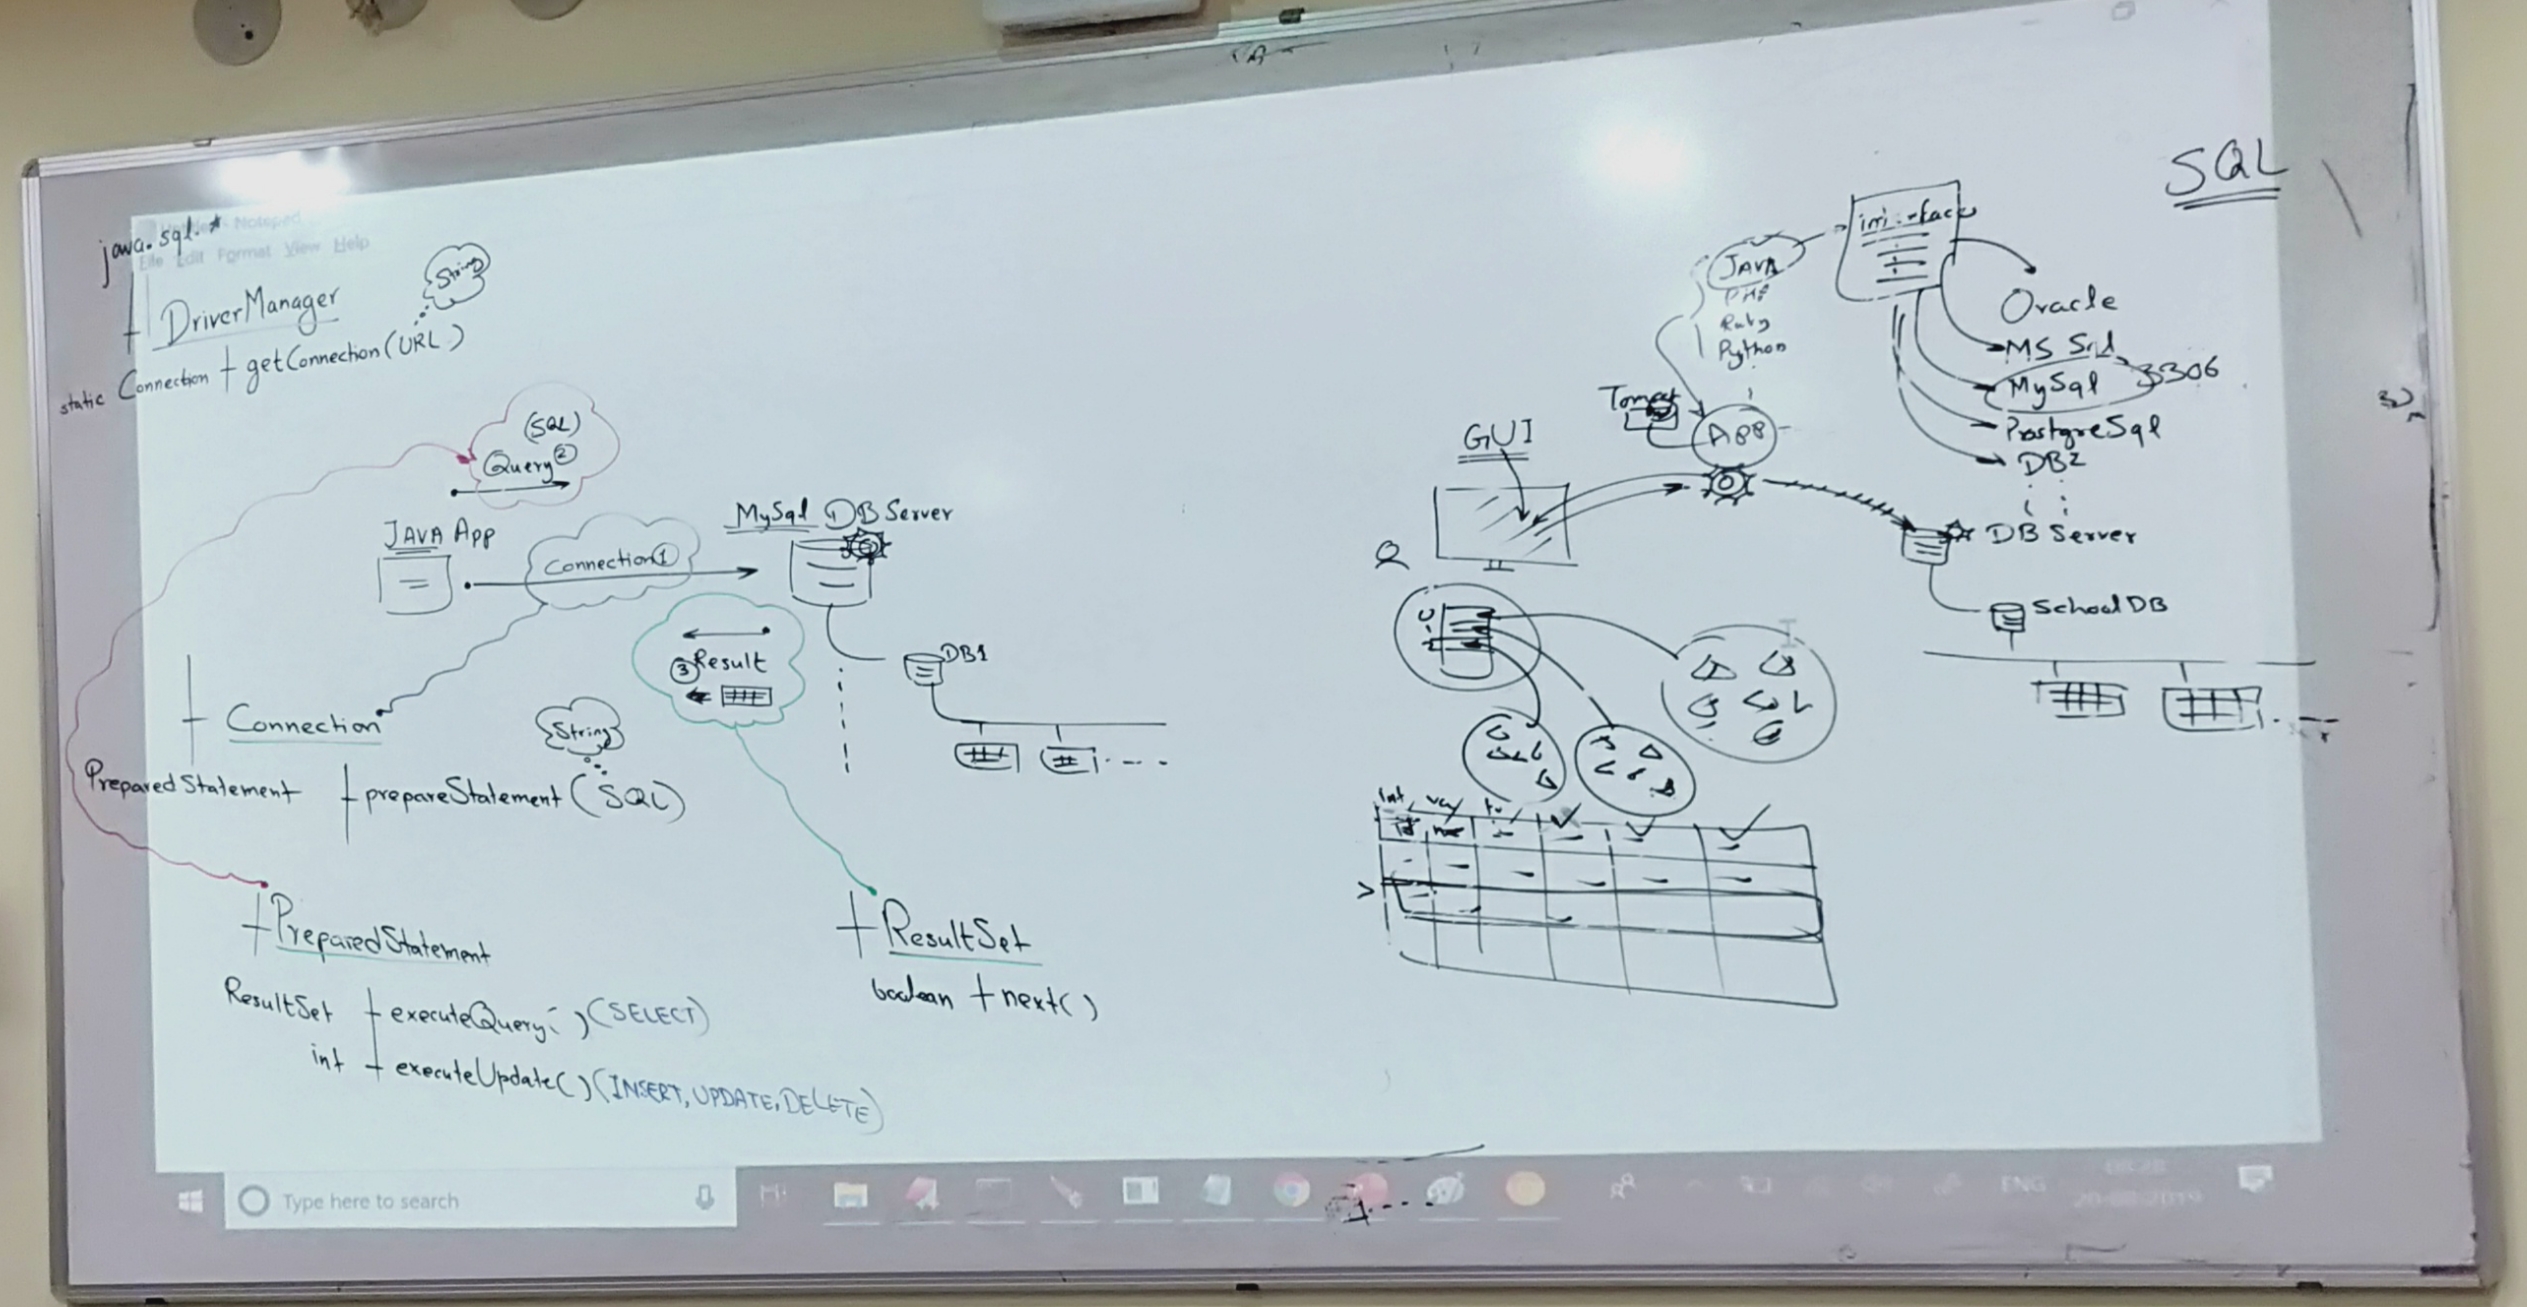 java.sql.*
Notepad
File Edit Format View Help
DriverManager
String
static Connection + getConnection(URL)
(SQL)
Query ②
JAVA App
Connection ①
MySql DB Server
③ Result
DB1
Connection
String
PreparedStatement + prepareStatement(SQL)
+ PreparedStatement
ResultSet + executeQuery( ) (SELECT)
int + executeUpdate( ) (INSERT, UPDATE, DELETE)
+ ResultSet
boolean + next( )
SQL
JAVA
PHP
Ruby
Python
Oracle
MS Sql
MySql 3306
PostgreSql
DB2
Tomcat
APP
GUI
DB Server
SchoolDB
int
id
Type here to search
ENG